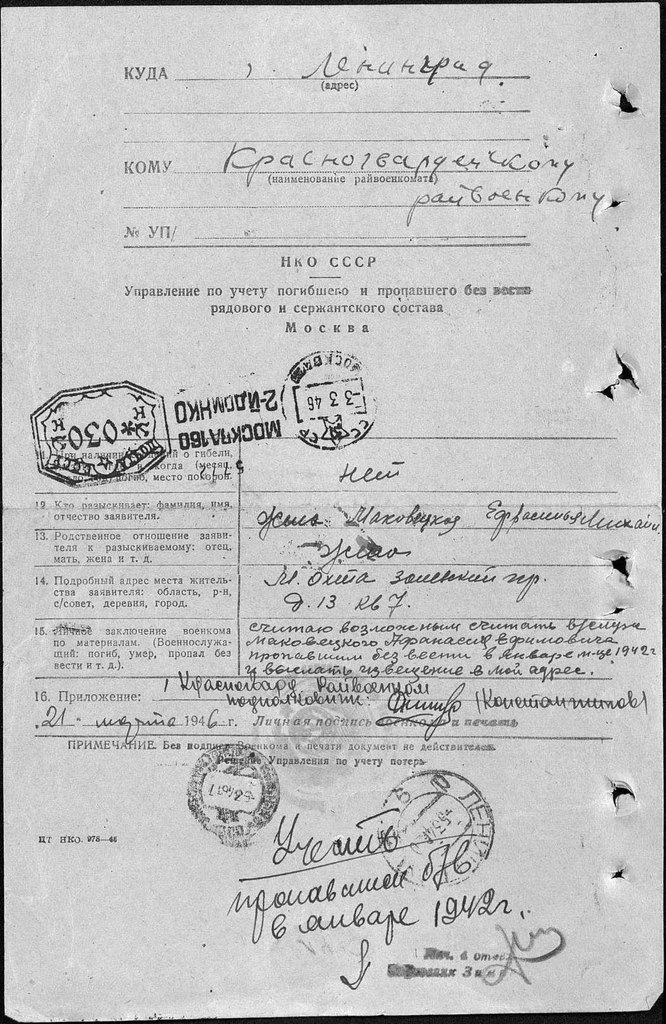 КУДА г. Ленинград
(адрес)
КОМУ Красногвардейскому
(наименование райвоенкомата)
райвоенкому
№ УП/
НКО СССР
Управление по учету погибшего и пропавшего без вести
рядового и сержантского состава
Москва
МОСКВА
3 3 46
СССР
МОСКВА 160
2-Й ДОМ НКО
*030
К
ПОЧТА СССР
11. При наличии о гибели,
когда (месяц,
погиб, место похорон.
нет
12. Кто разыскивает: фамилия, имя,
отчество заявителя.
жена Маковецкая
13. Родственное отношение заяви-
теля к разыскиваемому: отец,
мать, жена и т. д.
жена
14. Подробный адрес места житель-
ства заявителя: область, р-н,
с/совет, деревня, город.
М. Охта пр.
д. 13 кв 7.
15. Личное заключение военкома
по материалам. (Военнослужа-
щий: погиб, умер, пропал без
вести и т. д.).
считаю возможным считать
Маковецкого Афанасия Ефимовича
пропавшим без вести в январе м-це 1942 г
и выслать извещение в мой адрес.
16. Приложение:
Красногвард. Райвоенком
подполковник (Константинов)
„21“ марта 1946 г. Личная подпись военкома и печать
ПРИМЕЧАНИЕ. Без подписи Военкома и печати документ не действителен.
Решение Управления по учету потерь
ЦТ НКО. 978—46
ЛЕНИНГРАД
Учесть
пропавшим б/в
в январе 1942 г.
Нач. 4 отдел